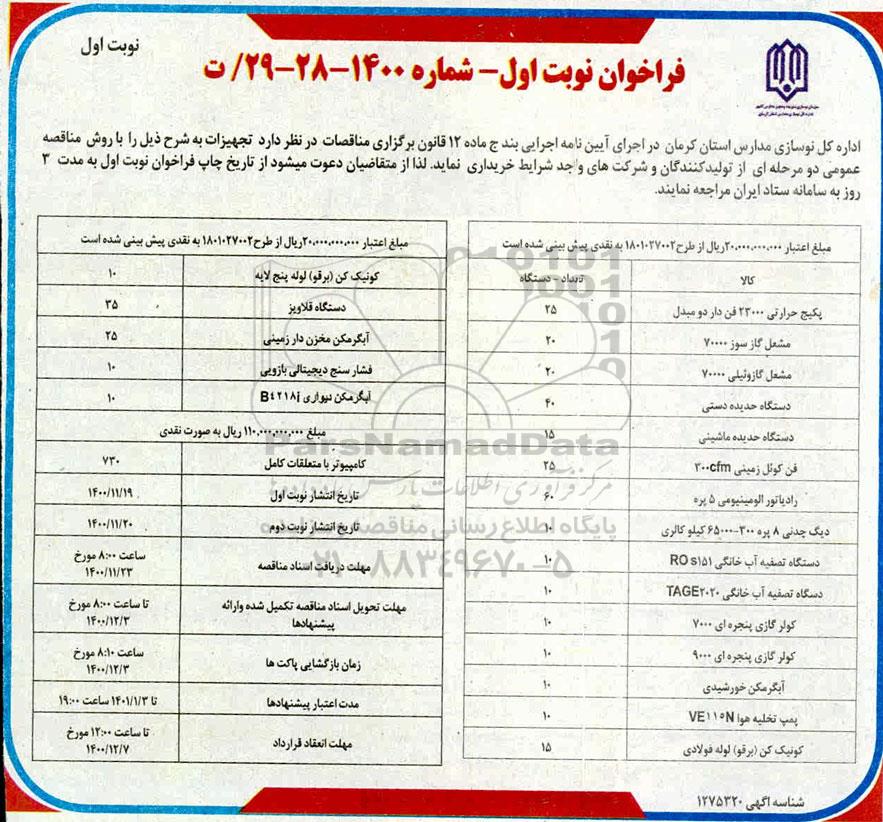 نوبت اول
فراخوان نوبت اول- شماره ۱۴۰۰-۲۸-۲۹/ ت
اداره کل نوسازی مدارس استان کرمان در اجرای آیین نامه اجرایی بند ج ماده ۱۲ قانون برگزاری مناقصات در نظر دارد تجهیزات به شرح ذیل را با روش مناقصه
عمومی دو مرحله ای از تولیدکنندگان و شرکت های واجد شرایط خریداری نماید. لذا از متقاضیان دعوت میشود از تاریخ چاپ فراخوان نوبت اول به مدت ۳
روز به سامانه ستاد ایران مراجعه نمایند.
مبلغ اعتبار ۲۰.۰۰۰.۰۰۰.۰۰۰ریال از طرح۱۸۰۱۰۲۷۰۰۲ به نقدی پیش بینی شده است
کالا تعداد - دستگاه
پکیج حرارتی ۲۳۰۰۰ فن دار دو مبدل ۲۵
مشعل گاز سوز ۷۰۰۰۰ ۲۰
مشعل گازوئیلی ۷۰۰۰۰ ۲۰
دستگاه حدیده دستی ۴۰
دستگاه حدیده ماشینی ۱۵
فن کوئل زمینی ۳۰۰cfm ۲۵
رادیاتور الومینیومی ۵ پره ۶۰
دیگ چدنی ۸ پره ۳۰۰-۶۵۰۰۰ کیلو کالری ۱۰
دستگاه تصفیه آب خانگی RO s۱۵۱ ۱۰
دسگاه تصفیه آب خانگی TAGE۲۰۲۰ ۱۰
کولر گازی پنجره ای ۷۰۰۰ ۱۰
کولر گازی پنجره ای ۹۰۰۰ ۱۰
آبگرمکن خورشیدی ۱۰
پمپ تخلیه هوا VE۱۱۵N ۱۰
کونیک کن (برقو) لوله فولادی ۱۵
مبلغ اعتبار ۲۰.۰۰۰.۰۰۰.۰۰۰ریال از طرح۱۸۰۱۰۲۷۰۰۲ به نقدی پیش بینی شده است
کونیک کن (برقو) لوله پنج لایه ۱۰
دستگاه قلاویز ۳۵
آبگرمکن مخزن دار زمینی ۲۵
فشار سنج دیجیتالی بازویی ۱۰
آبگرمکن دیواری B۴۲۱۸i ۱۰
مبلغ ۱۱۰.۰۰۰.۰۰۰.۰۰۰ ریال به صورت نقدی
کامپیوتر با متعلقات کامل ۷۳۰
تاریخ انتشار نوبت اول ۱۴۰۰/۱۱/۱۹
تاریخ انتشار نوبت دوم ۱۴۰۰/۱۱/۲۰
مهلت دریافت اسناد مناقصه ساعت ۸:۰۰ مورخ
۱۴۰۰/۱۱/۲۳
مهلت تحویل اسناد مناقصه تکمیل شده وارائه تا ساعت ۸:۰۰ مورخ
پیشنهادها ۱۴۰۰/۱۲/۳
زمان بازگشایی پاکت ها ساعت ۸:۱۰ مورخ
۱۴۰۰/۱۲/۳
مدت اعتبار پیشنهادها تا ۱۴۰۱/۱/۳ ساعت ۱۹:۰۰
مهلت انعقاد قرارداد تا ساعت ۱۲:۰۰ مورخ
۱۴۰۰/۱۲/۷
ParsNamadData
مرکز فرآوری اطلاعات پارس
پایگاه اطلاع رسانی مناقصه
۰۲۱-۸۸۳۴۹۶۷۰-۵
شناسه اگهی ۱۲۷۵۳۲۰